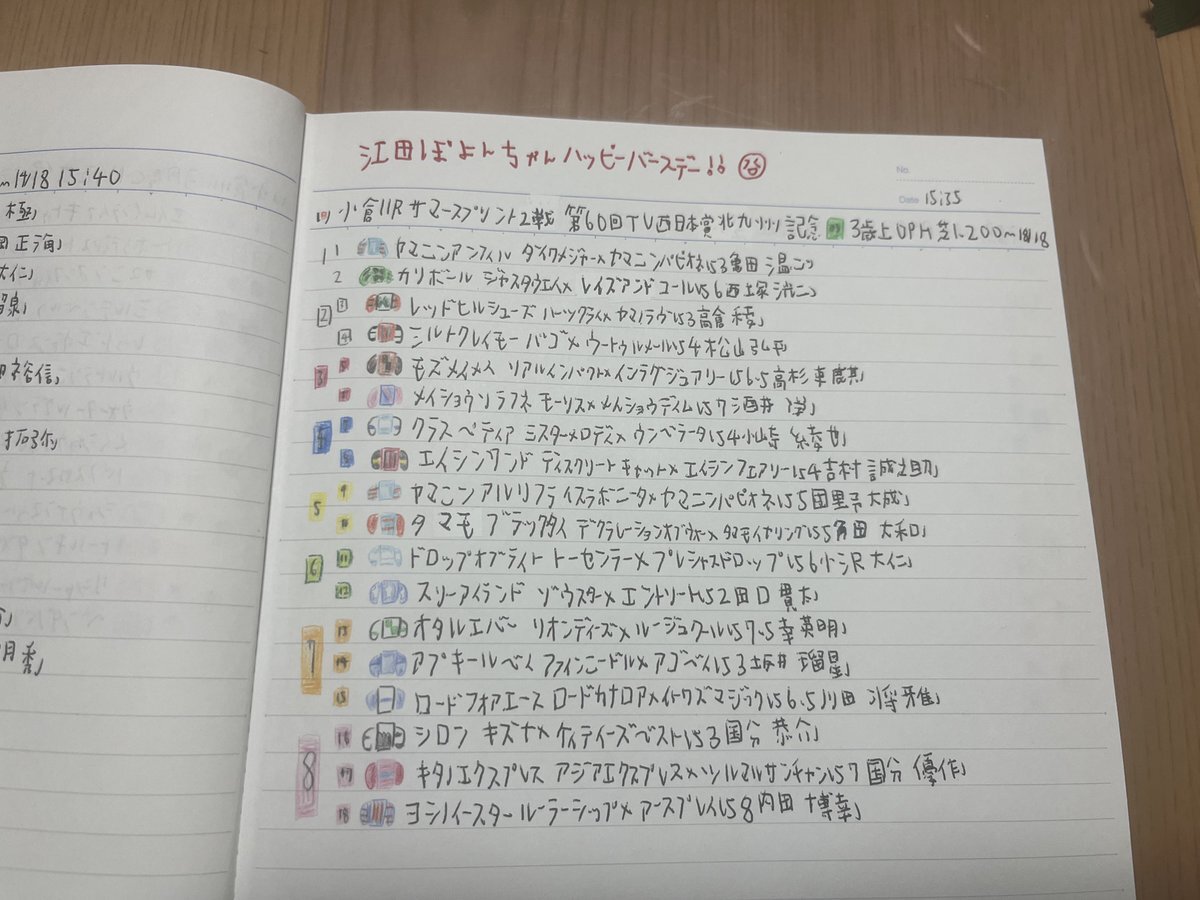 15:40
極」
正海」
大仁」
裕信」
拓弥」
月秀」
江田ぽよんちゃんハッピーバースデー!!
No.
Date 15:35
小倉11Rサマースプリント2戦 第60回TV西日本賞北九州記念 3歳上OPH芝1.200〜18/18
1 1 ヤマニンアンフィル ダイワメジャー×ヤマニンパピオネ53角田 温二」
2 カリボール ジャスタウェイ× レイズアンドコール56西塚 洸二」
2 3 レッドヒルシューズ ハーツクライ×ヤマノラヴ53高倉 稜」
4 シルトクレイモー バゴ×ウートゥルメール54松山弘平
3 5 モズメイメイ リアルインパクト×インラグジュアリー56.5高杉 吏麒」
メイショウソラフネ モーリス×メイショウディム57酒井 学」
4 7 クラスペディア ミスターメロディ×ウンベラータ54小崎 綾也」
8 エイシンワンド ディスクリートキャット×エイシンフェアリー54吉村 誠之助」
5 9 ヤマニンアルリフラ イスラボニータ×ヤマニンパピオネ55団野 大成」
10 タマモブラックタイ デクラレーションオブウォー×タマモイヤリング55角田 大和」
6 11 ドロップオブライト トーセンラー×プレシャスドロップ56小沢 大仁」
12 スリーアイランド ゾウスター×エントリート52田口 貫太」
7 13 オタルエバー リオンディーズ×ルージュクール57.5幸 英明」
14 アブキールベイ ファインニードル×アゴベイ53坂井 瑠星」
15 ロードフォアエース ロードカナロア×イトワズマジック56.5川田 将雅」
8 16 シロン キズナ×ケイティーズベスト53国分 恭介」
17 キタノエクスプレス アジアエクスプレス×ツルマルサンチャン57国分 優作」
18 ヨシノイースター ルーラーシップ×アースプレイ58内田 博幸」